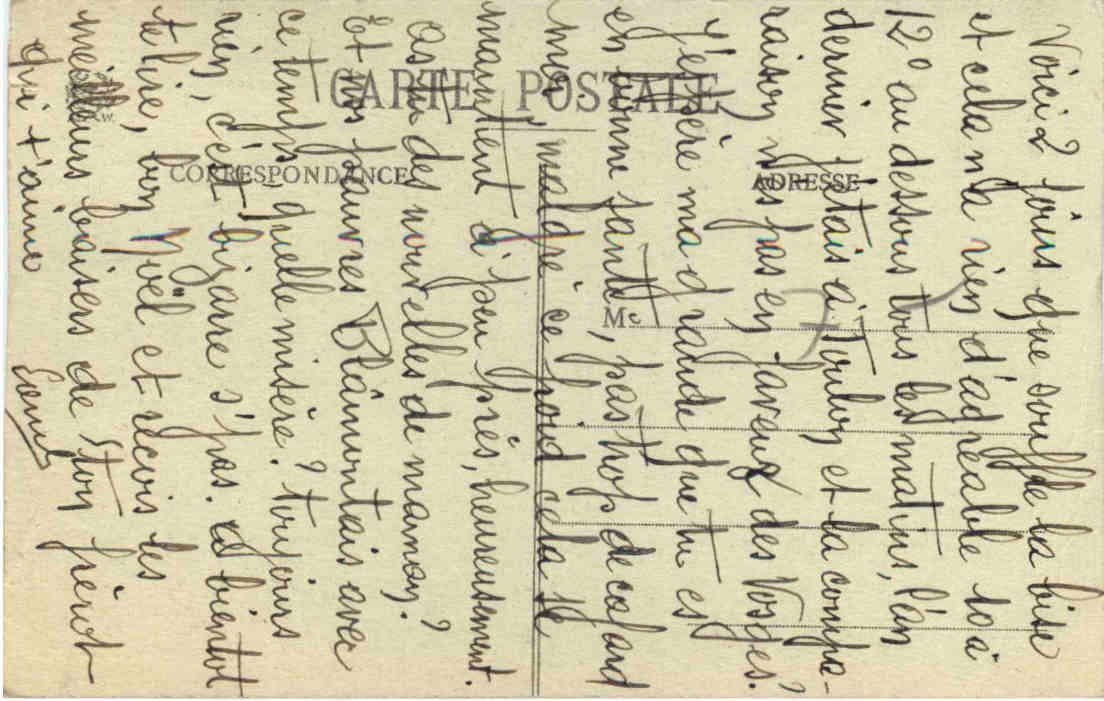 CARTE POSTALE
CORRESPONDANCE
ADRESSE
M
Voici 2 jours que souffle la bise
et cela n'a rien d'agréable 10 à
12° au dessous tous les matins, l'an
dernier j'étais à Toulon et la compa-
raison n'est pas en faveur des Vosges?
J'espère ma grande que tu es
en bonne santé, pas trop de cafard
malgré ce froid cela se
maintient à peu près, heureusement.
As tu des nouvelles de maman?
Et les pauvres Blâmontais avec
ce temps quelle misère? toujours
rien, c'est bizarre s'pas. à bientôt
te lire, bon Noël et reçois les
meilleurs baisers de ton frérot
qui t'aime